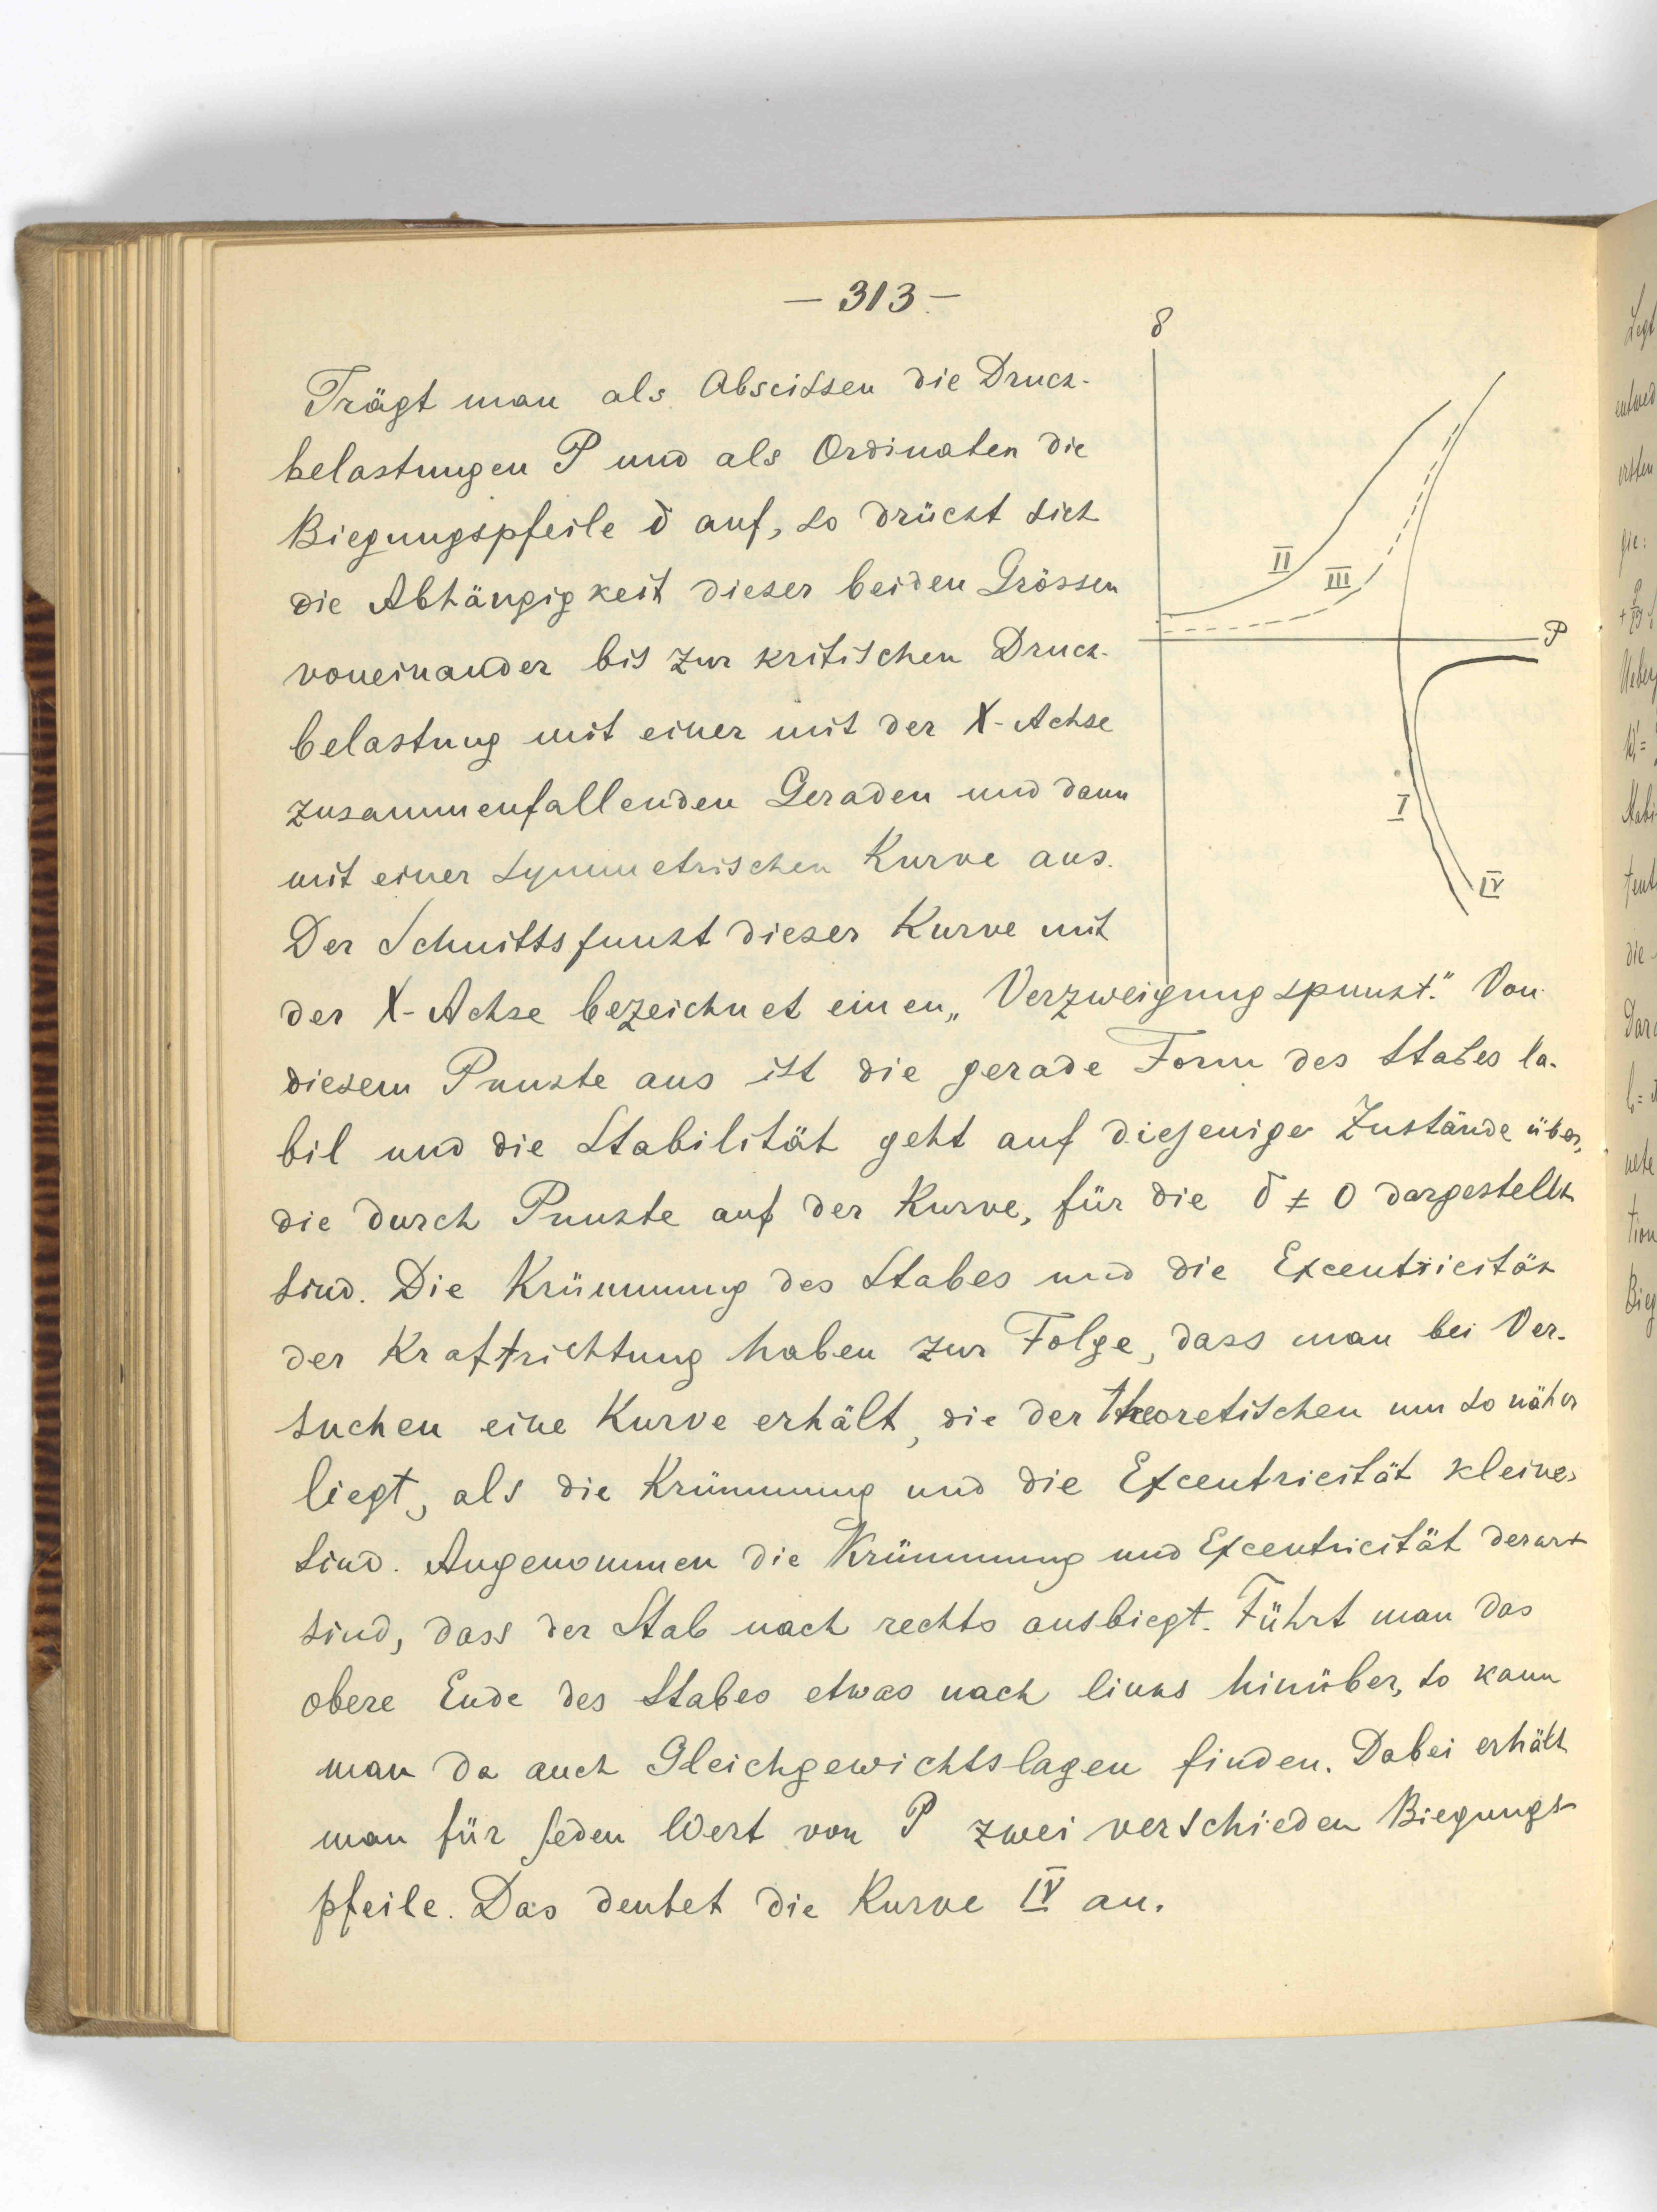 — 313 —
δ
Trägt man als Abscissen die Druck-
belastungen P und als Ordinaten die
Biegungspfeile δ auf, so drückt sich
die Abhängigkeit dieser beiden Grössen
voneinander bis zur kritischen Druck-
belastung mit einer mit der X-Achse
zusammenfallenden Geraden und dann
mit einer symmetrischen Kurve aus.
Der Schnittspunkt dieser Kurve mit
II
III
P
I
IV
der X-Achse bezeichnet einen „Verzweigungspunkt." Von
diesem Punkte aus ist die gerade Form des Stabes la-
bil und die Stabilität geht auf diejenige Zustände über,
die durch Punkte auf der Kurve, für die δ ≠ 0 dargestellt
sind. Die Krümmung des Stabes und die Excentricität
der Kraftrichtung haben zur Folge, dass man bei Ver-
suchen eine Kurve erhält, die der theoretischen um so näher
liegt, als die Krümmung und die Excentricität kleiner
sind. Angenommen die Krümmung und Excentricität derart
sind, dass der Stab nach rechts ausbiegt. Führt man das
obere Ende des Stabes etwas nach links hinüber, so kann
man da auch Gleichgewichtslagen finden. Dabei erhält
man für jeden Wert von P zwei verschieden Biegungs-
pfeile. Das deutet die Kurve IV an.